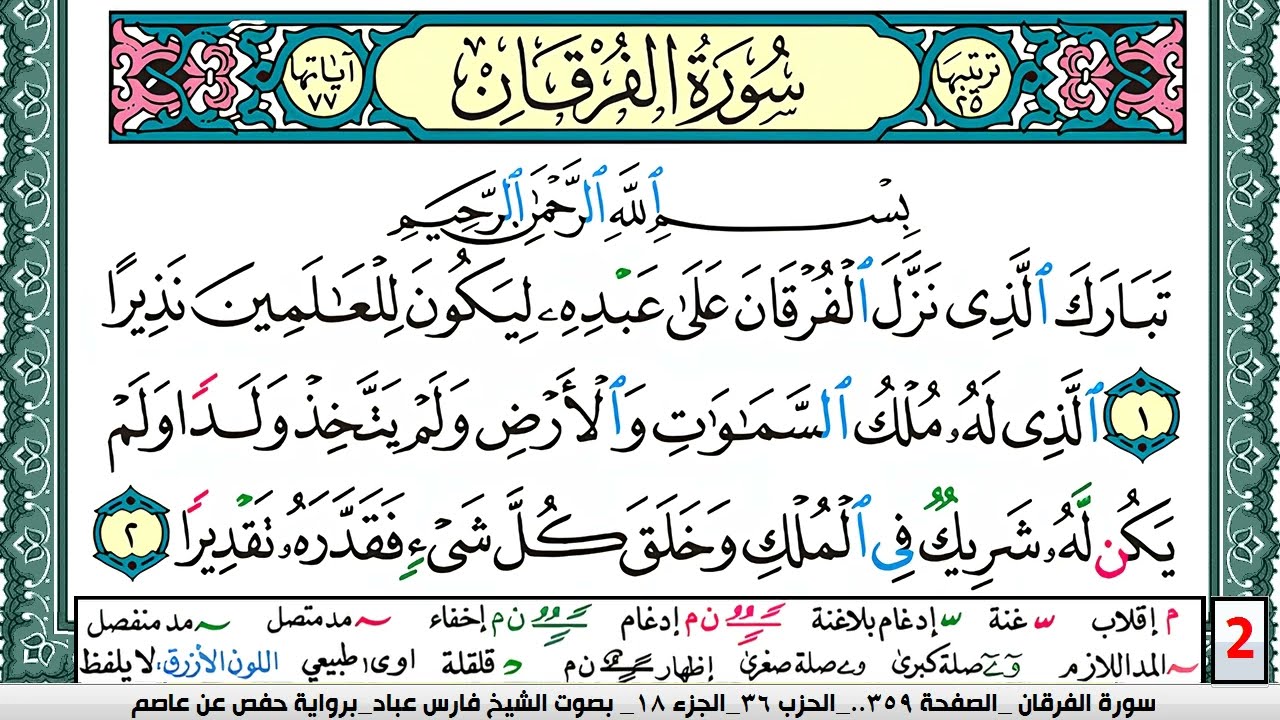 ترتيبها ٢٥ سُورَةُ الفُرْقَانِ آياتها ٧٧
بِسْمِ ٱللَّهِ ٱلرَّحْمَٰنِ ٱلرَّحِيمِ
تَبَارَكَ ٱلَّذِى نَزَّلَ ٱلْفُرْقَانَ عَلَىٰ عَبْدِهِۦ لِيَكُونَ لِلْعَـٰلَمِينَ نَذِيرًا
١ ٱلَّذِى لَهُۥ مُلْكُ ٱلسَّمَـٰوَٰتِ وَٱلْأَرْضِ وَلَمْ يَتَّخِذْ وَلَدًا وَلَمْ
يَكُن لَّهُۥ شَرِيكٌ فِى ٱلْمُلْكِ وَخَلَقَ كُلَّ شَىْءٍ فَقَدَّرَهُۥ تَقْدِيرًا ٢
م إقلاب س غنة س إدغام بلاغنة ن م إدغام ن م إخفاء مد متصل مد منفصل
المد اللازم صلة كبرى صلة صغرى إظهار ن م د قلقلة اوى طبيعي اللون الأزرق، لا يلفظ
2
سورة الفرقان _الصفحة ٣٥٩.._الحزب ٣٦_الجزء ١٨_ بصوت الشيخ فارس عباد_برواية حفص عن عاصم